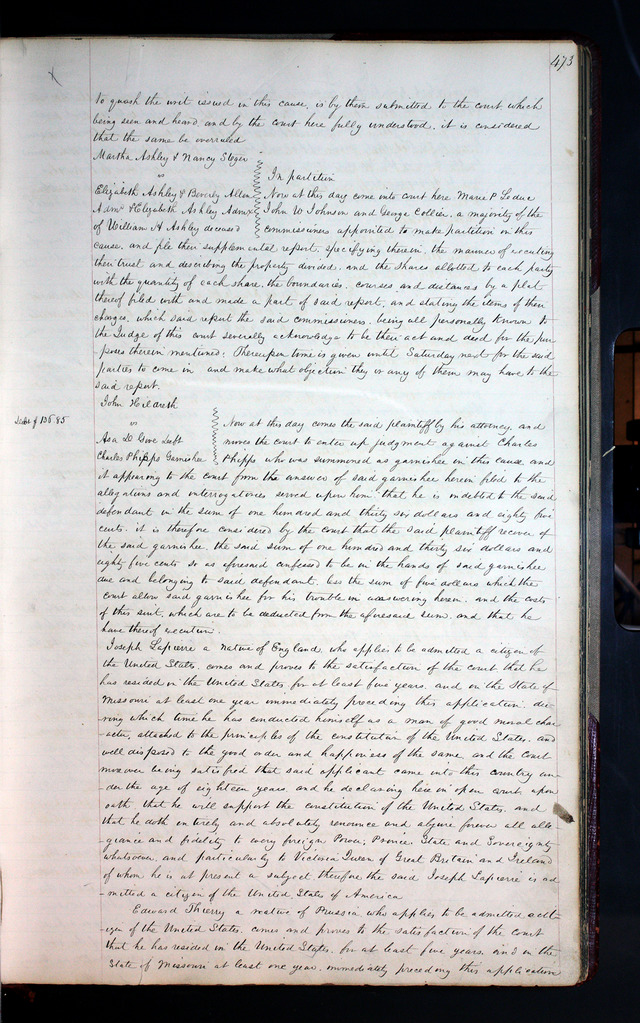 473
to quash the writ issued in this cause, is by them submitted to the court which
being seen and heard, and by the court here fully understood, it is considered
that the same be overruled
Martha Ashley & Nancy Steger
vs
In partition
Elizabeth Ashley & Beverly Allen
Now at this day come into court here Marie P Leduc
Admr & Elizabeth Ashley Admx
John W Johnson and George Collier, a majority of the
of William H Ashley deceased
commissioners appointed to make partition in this
cause, and file their supplemental report, specifying therein, the manner of executing
their trust and describing the property divided, and the shares allotted to each party
with the quantity of each share, the boundaries, courses and distances by a plat
thereof filed with and made a part of said report, and stating the items of their
charges, which said report the said commissioners, being all personally known to
the Judge of this court severally acknowledge to be their act and deed for the pur
poses therein mentioned; Thereupon time is given until Saturday next for the said
parties to come in and make what objection they or any of them may have to the
said report.
John Hildreth
vs
Now at this day comes the said plaintiff by his attorney, and
Asa D Gove Deft
moves the court to enter up judgment against Charles
Charles Phipps Garnishee
Phipps who was summoned as garnishee in this cause, and
it appearing to the court from the answer of said garnishee herein filed to the
allegations and interrogatories served upon him, that he is indebted to the said
defendant in the sum of one hundred and thirty six dollars and eighty five
cents, it is therefore considered by the court that the said plaintiff recover of
the said garnishee, the said sum of one hundred and thirty six dollars and
eighty five cents so as aforesaid confessed to be in the hands of said garnishee
due and belonging to said defendant, less the sum of five dollars which the
court allow said garnishee for his trouble in answering herein, and the costs
of this suit, which are to be deducted from the aforesaid sum, and that he
have thereof execution.
Joseph Lapierre a native of England, who applies to be admitted a citizen of
the United States, comes and proves to the satisfaction of the court that he
has resided in the United States, for at least five years, and in the State of
Missouri at least one year immediately preceding this application du-
-ring which time he has conducted himself as a man of good moral char
-acter, attached to the principles of the constitution of the United States, and
well disposed to the good order and happiness of the same, and the court
moreover being satisfied that said applicant came into this country un-
-der the age of eighteen years, and he declaring here in open court upon
oath that he will support the constitution of the United States, and
that he doth entirely and absolutely renounce and abjure forever all alle-
-giance and fidelity to every foreign Power, Prince, State and Sovereignty
whatsoever, and particularly to Victoria Queen of Great Britain and Ireland
of whom he is at present a subject therefore the said Joseph Lapierre is ad
-mitted a citizen of the United States of America
Edward Thierry a native of Prussia who applies to be admitted a cit-
-izen of the United States, comes and proves to the satisfaction of the court
that he has resided in the United States, for at least five years, and in the
State of Missouri at least one year, immediately preceding this application